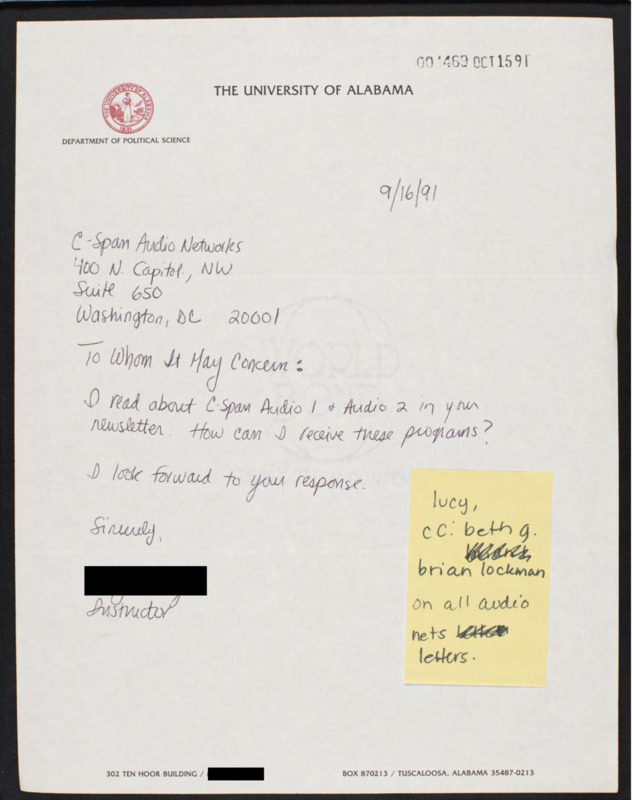 001463 OCT 15 91
THE UNIVERSITY OF ALABAMA
THE UNIVERSITY OF ALABAMA
1831
DEPARTMENT OF POLITICAL SCIENCE
9/16/91
C-Span Audio Networks
400 N. Capitol, NW
Suite 650
Washington, DC 20001
To Whom It May Concern:
I read about C-Span Audio 1 + Audio 2 in your
newsletter. How can I receive these programs?
I look forward to your response.
Sincerely,
Instructor
lucy,
cc: beth g.
brian lockman
on all audio
nets
letters.
302 TEN HOOR BUILDING /
BOX 870213 / TUSCALOOSA, ALABAMA 35487-0213